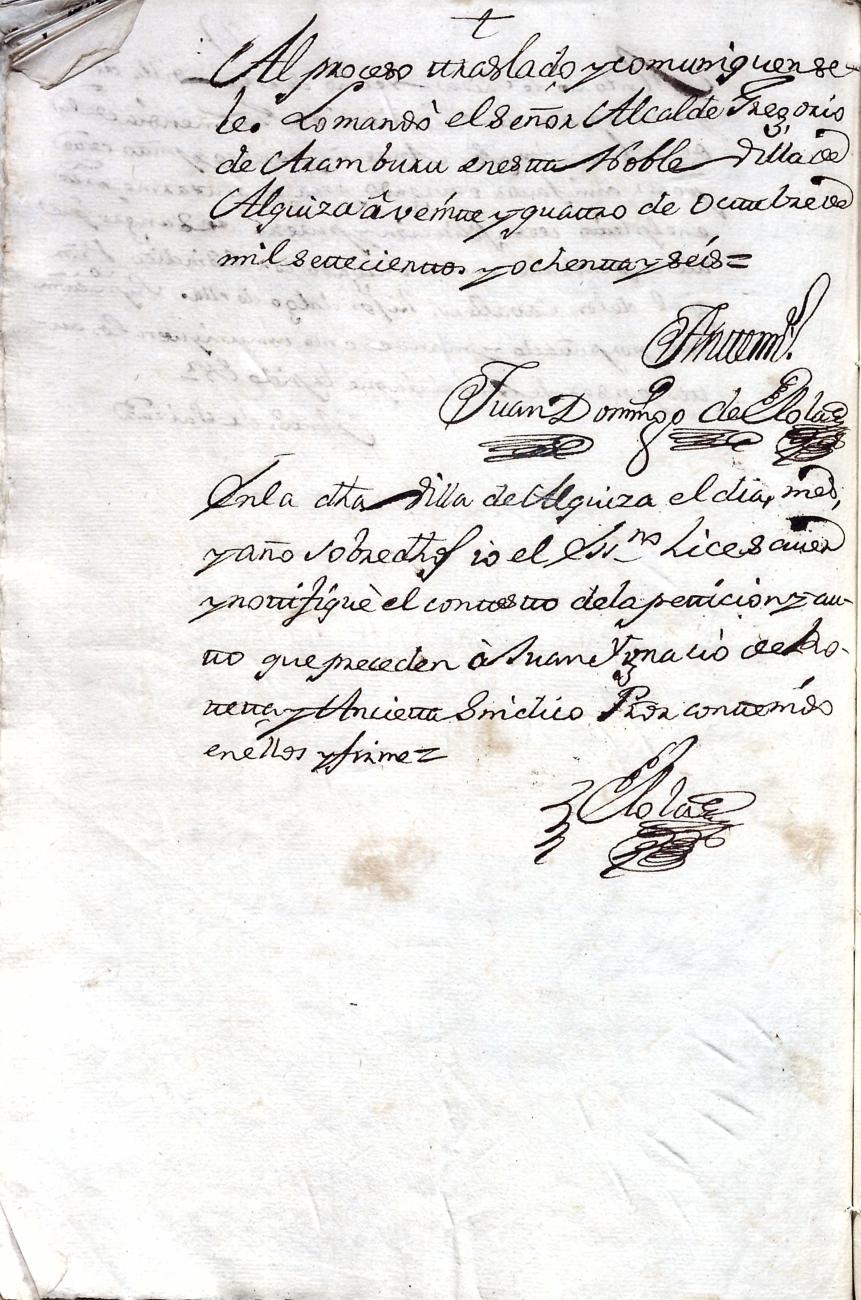 +
Al proceso ttraslado y comuniquense
le. Lo mandò el Señor Alcalde Gregorio
de Aramburu en estta Noble Villa de
Alquiza à veintte y quattro de Octtubre de
mil settecienttos y ochentta y séis=
Antte mi.
Juan Domingo de Elola
En la dha Villa de Alquiza el dia, mes,
y año sobredhos io el Ssno hice saver
y nottifiquè el conttestto de la petticion y au-
tto que preceden à Juan Ygnacio de
ttetta y Anciette Sindico Pror conttenido
en ellos y firme=
Elola